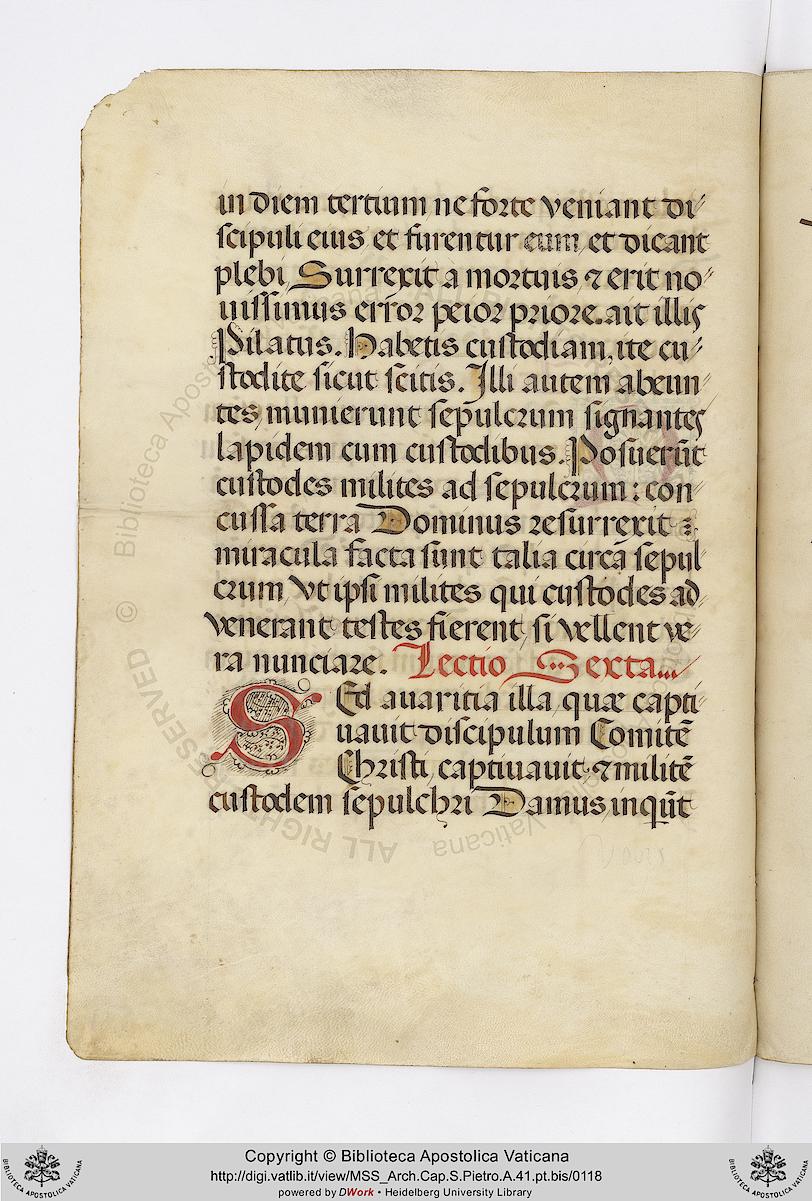 in diem tertium ne forte veniant di-
scipuli eius et furentur eum, et dicant
plebi, Surrexit a mortuis ⁊ erit no-
uissimus error peior priore. ait illis
Pilatus. Habetis custodiam, ite cu-
stodite sicut scitis. Illi autem abeun-
tes, munierunt sepulcrum signantes
lapidem cum custodibus. Posuerūt
custodes milites ad sepulcrum: con-
cussa terra Dominus resurrexit:
miracula facta sunt talia circa sepul-
crum, vt ipsi milites qui custodes ad-
venerant testes fierent, si vellent ve-
ra nunciare. Lectio Sexta
Sed avaritia illa, quæ capti-
uauit discipulum Comitē
Christi, captiuauit ⁊ militē
custodem sepulchri Damus, inquit
© Biblioteca Apostolica Vaticana
ALL RIGHTS RESERVED
Copyright © Biblioteca Apostolica Vaticana
http://digi.vatlib.it/view/MSS_Arch.Cap.S.Pietro.A.41.pt.bis/0118
powered by DWork • Heidelberg University Library
BIBLIOTECA APOSTOLICA VATICANA
BIBLIOTECA APOSTOLICA VATICANA